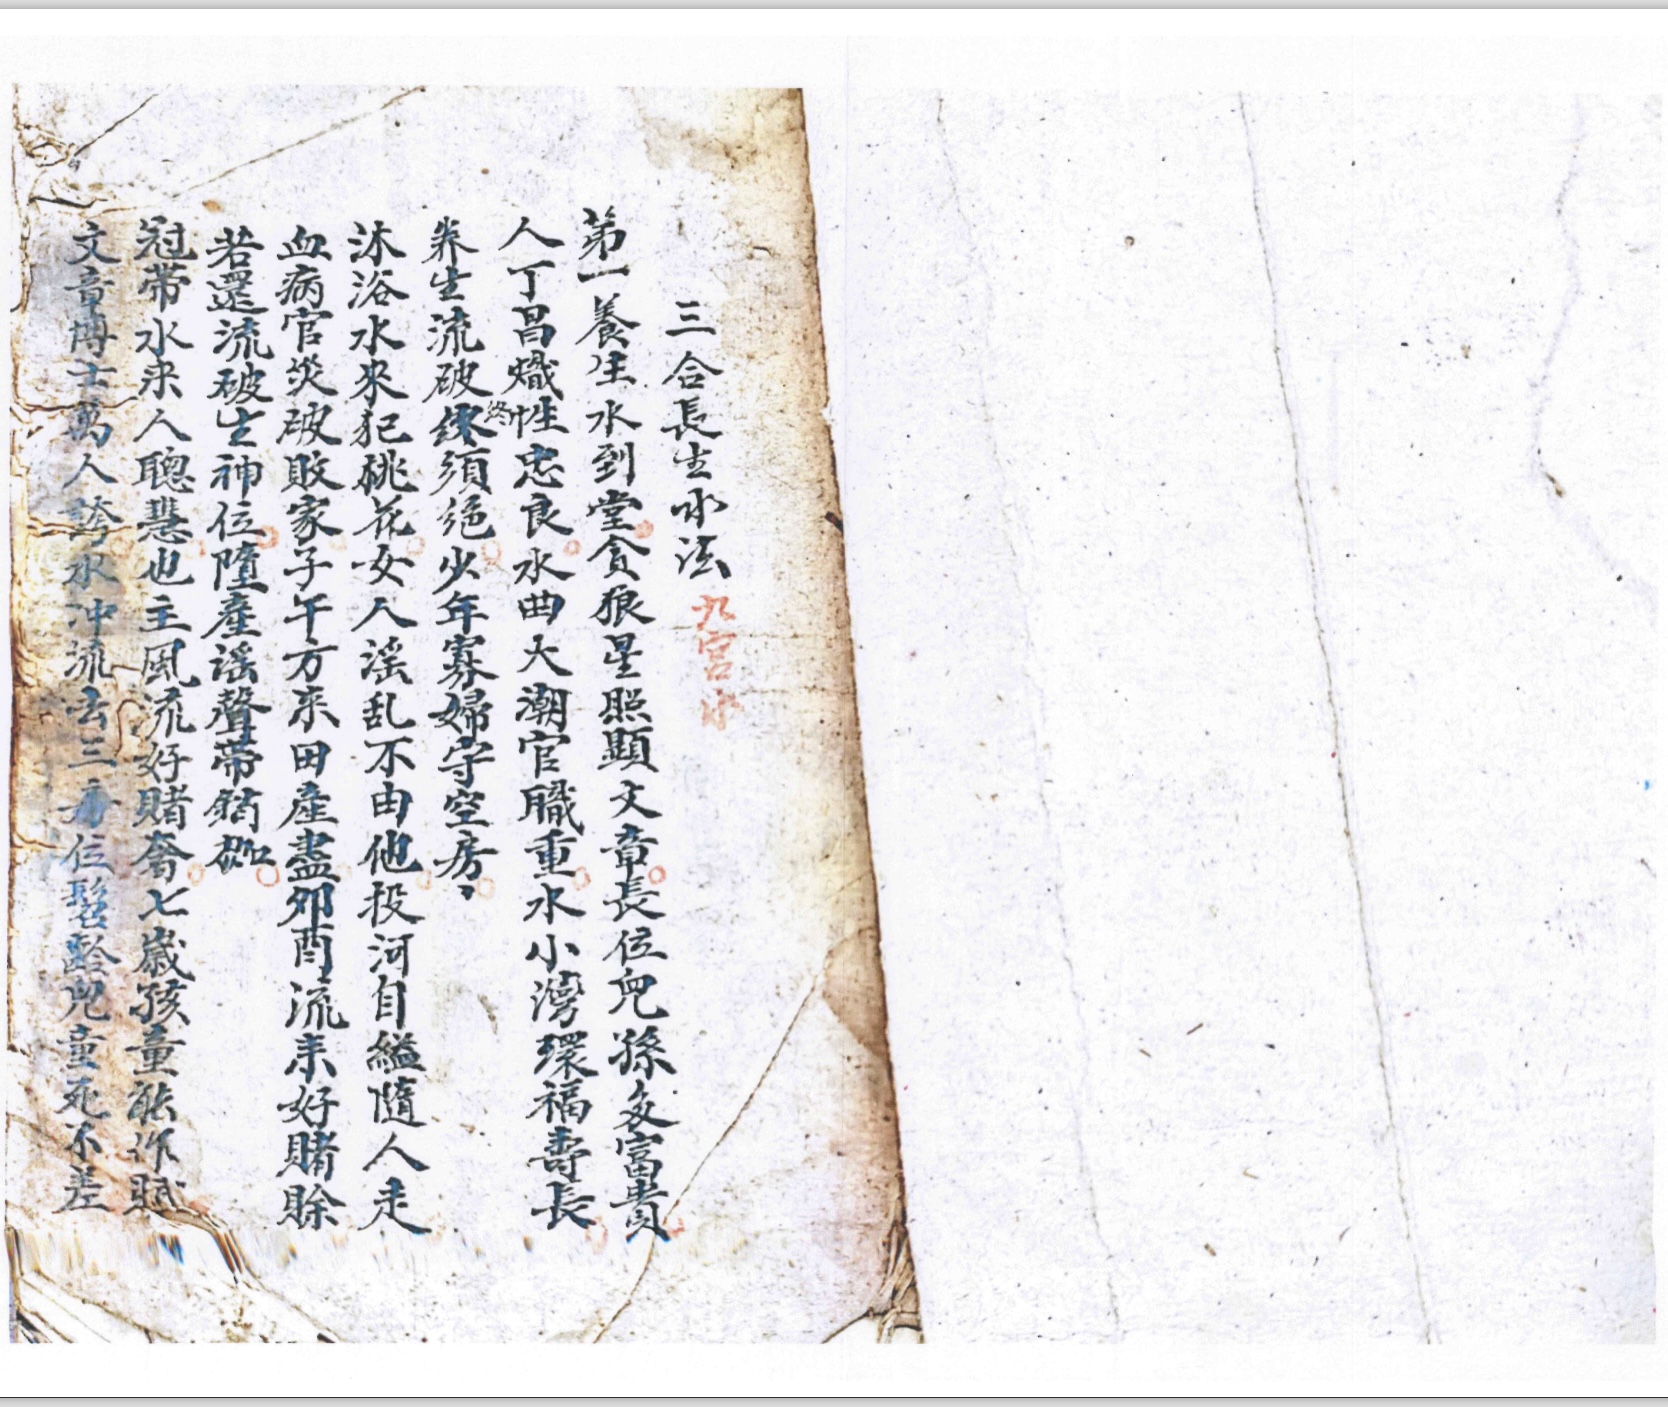 三合長生水法 九宮水
第一養生水到堂貪狼星照顯文章長位兒孫多富貴
人丁昌熾性忠良水曲大潮官職重水小灣環福壽長
养生流破終須絕少年寡婦守空房
終
沐浴水來犯桃花女人淫乱不由他投河自縊隨人走
血病官災破敗家子午方來田產盡卯酉流来好賭賒
若還流破生神位墮產淫聲帶鎖枷
冠帶水来人聰慧也主風流好賭奢七歲孩童能作賦
文章博士萬人誇水冲流去三方位髫齡兒童死不差